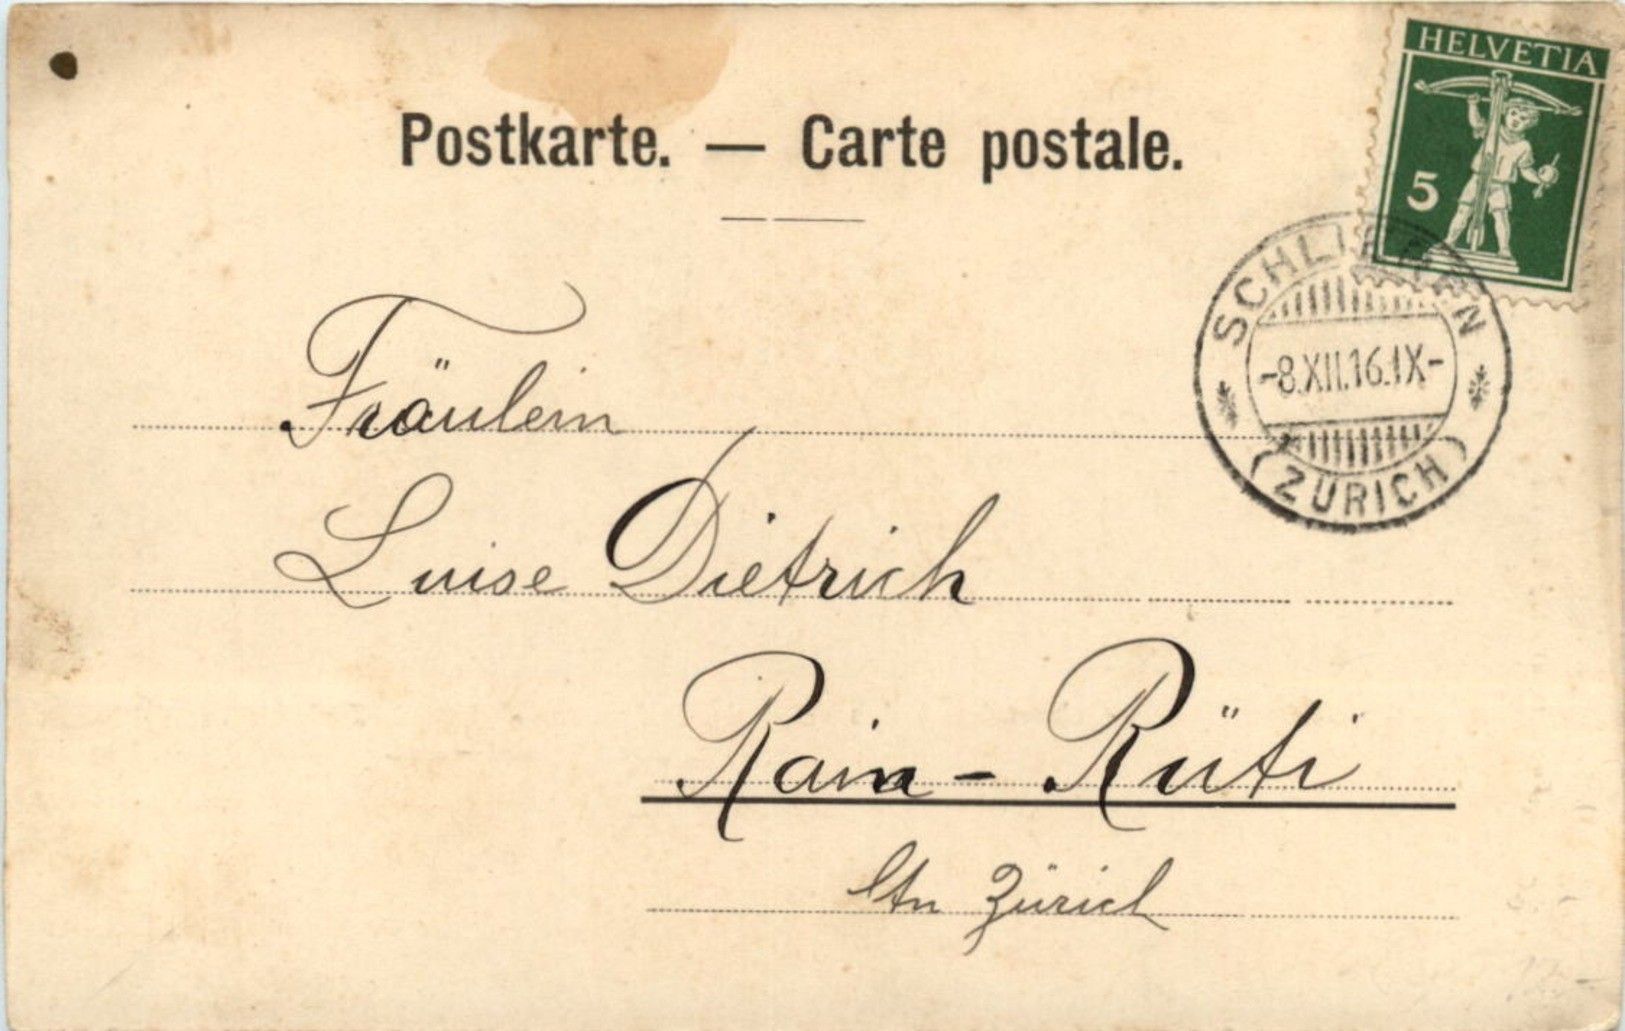 HELVETIA
5
Postkarte. — Carte postale.
SCHLIEREN
-8.XII.16.IX-
(ZÜRICH)
Fräulein
Luise Dietrich
Rain - Rüti
Ktn Zürich